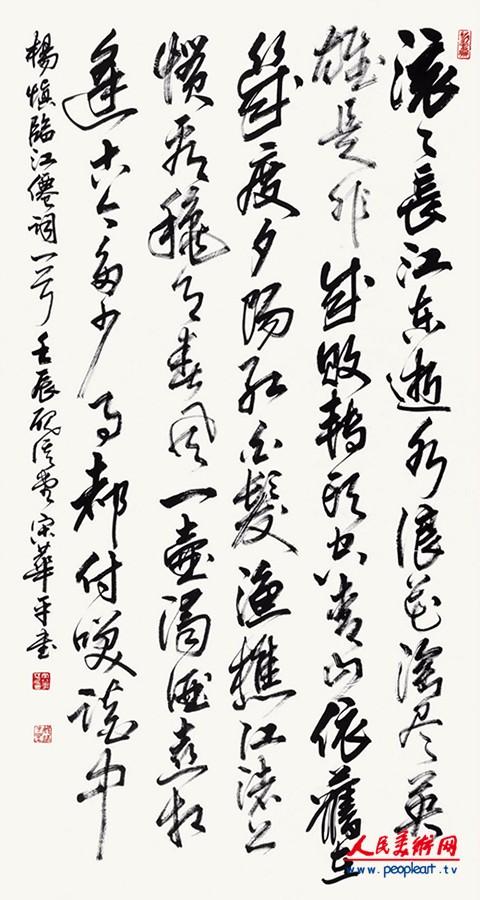 滚滚長江东逝水浪花淘尽英
雄是非成败轉头空青山依舊在
幾度夕陽红白髮渔樵江渚上
惯看穐月春风一壶濁酒喜相
逢古今多少事都付笑谈中
楊慎臨江僊词一首 壬辰 宋華平書
人民美術网
www.peopleart.tv